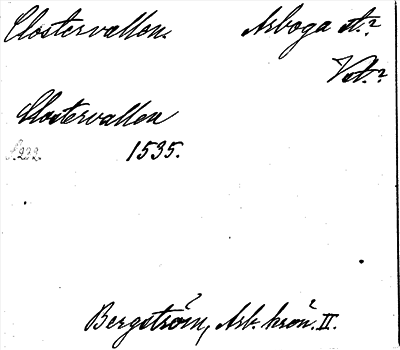 Clostervallen. Arboga st.?
Vstm.?
Clostervallen
S. 232. 1535.
Bergström, Arb. krön. II.